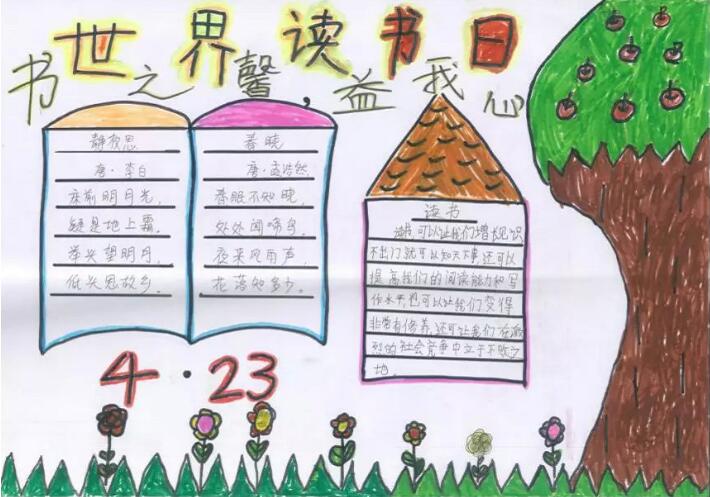 世界读书日
书之馨,益我心
静夜思
唐·李白
床前明月光,
疑是地上霜。
举头望明月,
低头思故乡。
春晓
唐·孟浩然
春眠不觉晓,
处处闻啼鸟。
夜来风雨声,
花落知多少。
读书
读书可以让我们增长见识
不出门就可以知天下事还可以
提高我们的阅读能力和写
作水平也可以让我们变得
非常有修养,还可让我们在激
烈的社会竞争中立于不败之
地。
4·23